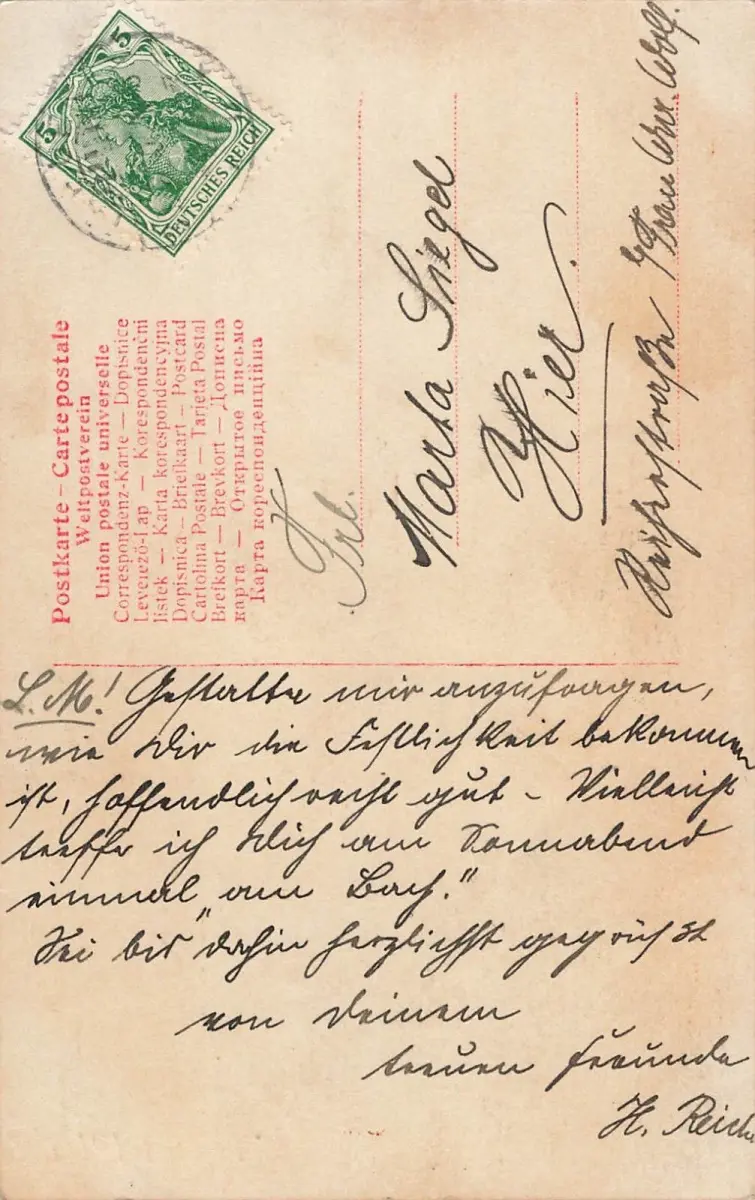 5
5
DEUTSCHES REICH
Postkarte – Carte postale
Weltpostverein
Union postale universelle
Correspondenz-Karte – Dopisnice
Levelező-Lap – Korespondenční
listek – Karta korespondencyjna
Dopisnica – Briefkaart – Postcard
Cartolina Postale – Tarjeta Postal
Brefkort – Brevkort – Дописна
карта – Открытое письмо
Карта кореспонденційна
Frl.
Marta Siegel
Hier.
Frau Wwe. Wolf.
L. M.! Gestatte mir anzufragen,
wie Dir die Festlichkeit bekommen
ist, hoffendlich recht gut – Vielleicht
treffe ich Dich am Sonnabend
einmal „am Bach.“
Sei bis dahin herzlichst gegrüsst
von Deinem
treuen Freunde
H.